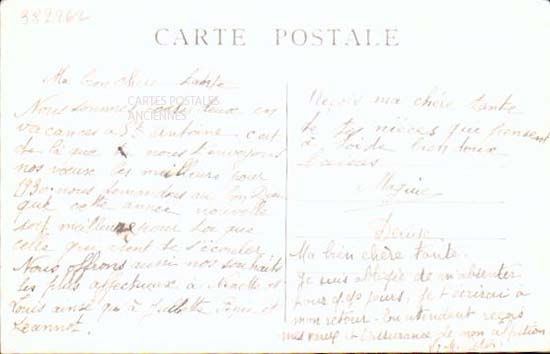 382962
CARTE POSTALE
CARTES POSTALES
ANCIENNES
Ma bien chère
Nous sommes toutes deux en
vacances à St Antoine c'est
de là que nous t'envoyons
nos vœux les meilleurs pour
1930 nous demandons au bon Dieu
que cette année nouvelle
soit meilleure pour toi que
celle qui vient de s'écouler
Nous offrons aussi nos souhaits
les plus affectueux à
Louis ainsi qu'à Juliette et
Jeannot.
Reçois ma chère tante
de tes nièces que pensent
à toi de bien doux
baisers
Denise
Ma bien chère tante.
Je suis obligée de m'absenter
pour jours, je t'écrirai à
mon retour. En attendant reçois
mes vœux et l'assurance de mon affection